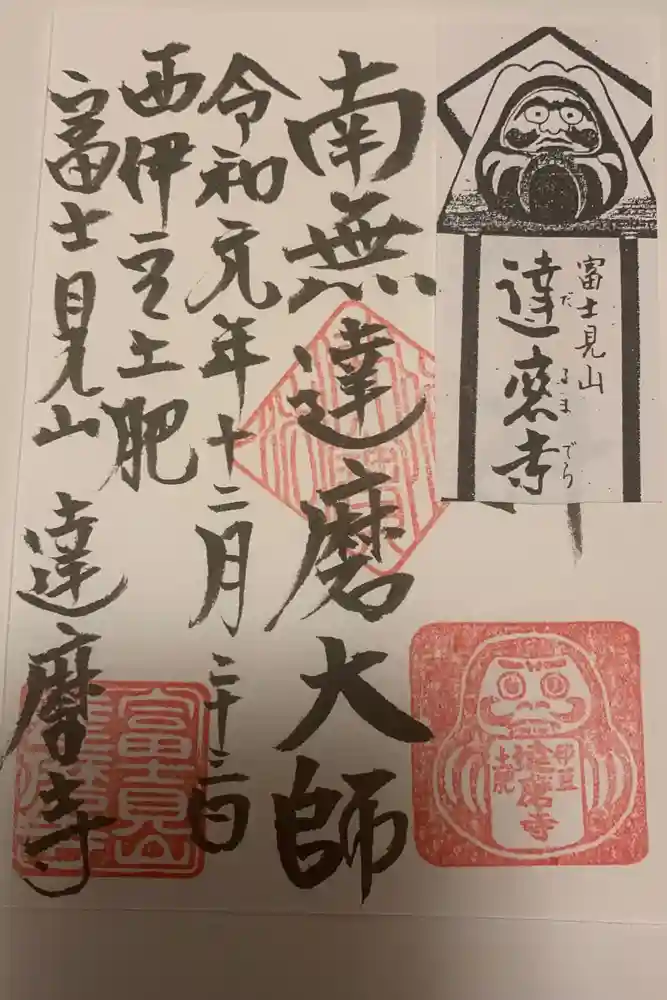 富士見山
達磨寺
だるまでら
南無達磨大師
令和元年十二月二十三日
西伊豆土肥
富士見山 達磨寺
伊豆
達磨寺
土肥